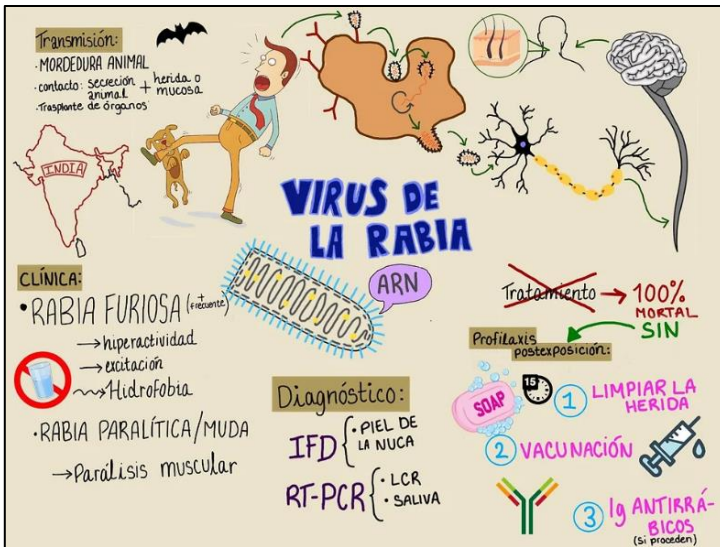 Transmisión:
·MORDEDURA ANIMAL
·contacto: secreción animal + herida o mucosa
·Trasplante de órganos
INDIA
VIRUS DE
LA RABIA
ARN
CLÍNICA:
·RABIA FURIOSA (+ frecuente)
→hiperactividad
→excitación
→Hidrofobia
·RABIA PARALÍTICA/MUDA
→Parálisis muscular
Diagnóstico:
IFD { ·PIEL DE
LA NUCA
RT-PCR { ·LCR
·SALIVA
Tratamiento → 100%
MORTAL
SIN
Profilaxis
postexposición:
SOAP
15
1 LIMPIAR LA
HERIDA
2 VACUNACIÓN
3 Ig ANTIRRÁ-
BICOS
(si proceden)